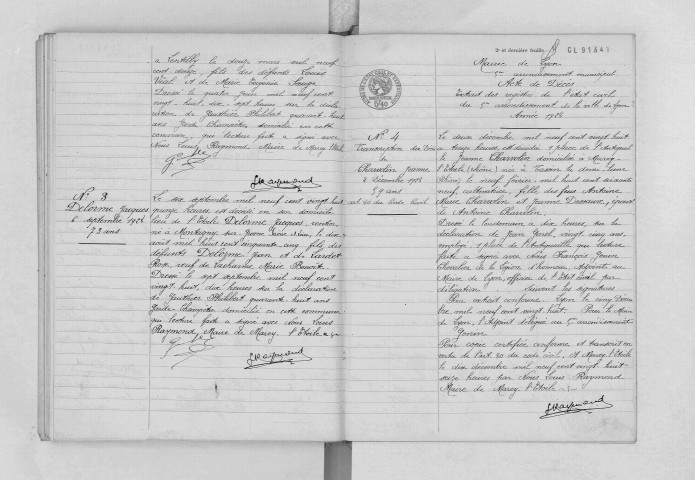 à Lentilly le douze mars mil neuf
cent douze, fils des défunts Louis
Vial et de Marie
Dressé le quatre juin mil neuf cent
vingt huit, dix sept heures sur la décla
ration de Gauthier Philibert quarante huit
ans Garde Champêtre, domicilié en cette
commune, qui lecture faite a signé avec
Nous Louis Raymond Maire de Marcy l'Etoile
LRaymond
N° 3
Delorme Jacques
6 septembre 1928
73 ans
Le six septembre mil neuf cent vingt huit
quinze heures est décédé en son domicile
lieu de l'Etoile Delorme Jacques, rentier
né à Montagny sur
août mil huit cent cinquante cinq fils des
défunts Delorme Jean et de Lardet
veuf de Marie Benoît
Dressé le sept septembre mil neuf cent
vingt huit, dix heures sur la déclaration
de Gauthier Philibert quarante huit ans
Garde Champêtre domicilié en cette commune
qui lecture faite a signé avec Nous Louis
Raymond, Maire de Marcy l'Etoile
LRaymond
2e et dernière feuille 8 GL 91541
Mairie de Lyon
5me arrondissement municipal
Acte de Décès
Extrait des registres de l'état civil
du 5me arrondissement de la ville de Lyon
Année 1928
N° 4
Transcription du Décès
de
Charvolin Jeanne
2 décembre 1928
59 ans
art 80 du Code Civil
Le deux décembre mil neuf cent vingt huit
à treize heures, est décédée 1 place de l'Antiquaille
Jeanne Charvolin domiciliée à Marcy
l'Etoile (Rhône) née à
Rhône) le neuf février mil huit cent soixante
neuf, fille des feus Antoine
Marie Charvolin et Jeanne épouse
de Antoine Charvolin.
Dressé le lendemain à dix heures, sur la
déclaration de Jean vingt cinq ans,
employé 1 place de l'Antiquaille qui lecture
faite a signé avec Nous François
Chevalier de la Légion d'honneur, Adjoint au
Maire de Lyon, officier de l'Etat Civil par
délégation suivent les signatures
Pour extrait conforme Lyon le cinq décem
bre mil neuf cent vingt huit. Pour le Maire
de Lyon, l'Adjoint délégué au 5me arrondissement
Pour copie certifiée conforme et transcrit en
vertu de l'art 80 du code civil, à Marcy l'Etoile
le dix décembre mil neuf cent vingt huit
seize heures par Nous Louis Raymond
Maire de Marcy l'Etoile
LRaymond